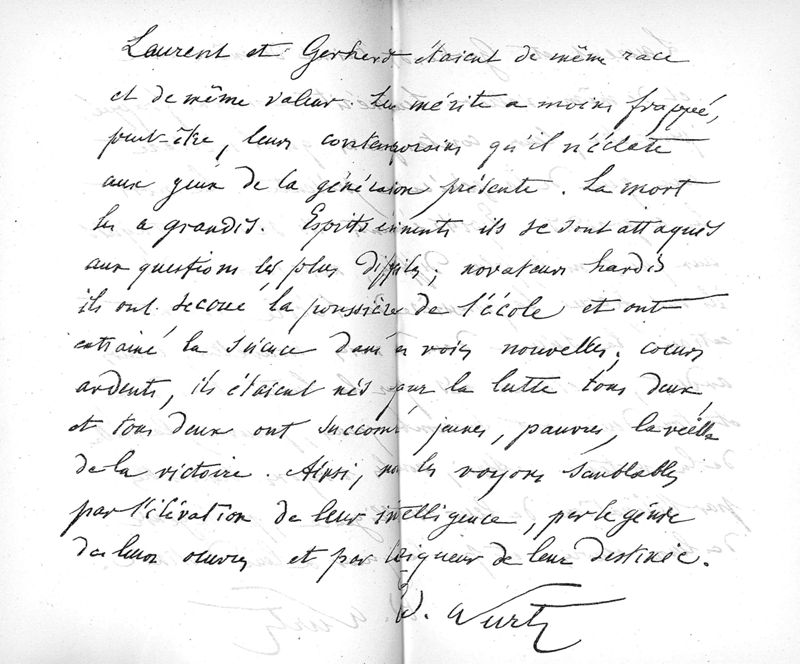 Laurent et Gerhardt étaient de même race
et de même valeur. Leur mérite a moins frappé,
peut-être, leurs contemporains qu'il n'éclate
aux yeux de la génération présente. La mort
les a grandis. Esprits éminents ils se sont attaqués
aux questions les plus difficiles; novateurs hardis
ils ont secoué la poussière de l'école et ont
entrainé la science dans des voies nouvelles; cœurs
ardents, ils étaient nés pour la lutte tous deux,
et tous deux ont succombé jeunes, pauvres, la veille
de la victoire. Ainsi, nous les voyons semblables
par l'élévation de leur intelligence, par le génie
de leurs œuvres et par la rigueur de leur destinée.
Wurtz